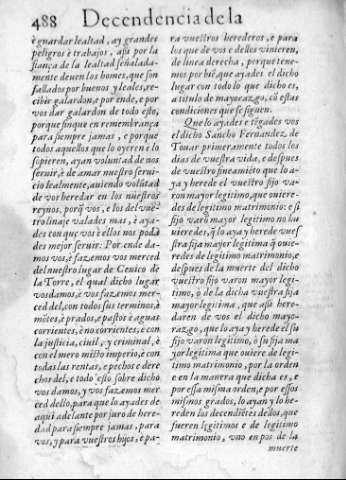 488 Decendencia de la
è guardar lealtad, ay grandes
peligros è trabajos, asi por la
fiança de la lealtad señalada-
mente deuen los homes, que son
fallados por buenos y leales, re-
cibir galardon, e por ende, e por
vos dar galardon de todo esto,
porque finque en remembrança
para siempre jamas, e porque
todos aquellos que lo oyeren è lo
sopieren, ayan voluntad de nos
seruir, è de amar nuestro serui-
cio lealmente, auiendo volũtad
de vos heredar en los nuestros
reynos, porq̃ vos, e los del vuestro
linaje valades mas, è aya-
des con que vos è ellos nos poda-
des mejor seruir: Por ende da-
mos vos, è fazemos vos merced
del nuestro lugar de Ceuico de
la Torre, el qual dicho lugar
vos damos, è vos fazemos mer-
ced del, con todos sus terminos, è
mõtes, è prados, e pastos è aguas
corrientes, è no corrientes, è con
la justicia, ciuil, y criminal, è
con el mero misto imperio, è con
todas las rentas, e pechos e dere
chos del, e todo esto sobre dicho
vos damos, y vos fazemos mer-
ced dello, para que lo ayades de
aqui adelante por juro de here-
dad para siempre jamas, para
vos, y para vuestros hijos, e pa-
ra vuestros herederos, e para
los que de vos e dellos vinieren,
de linea derecha, porque tene-
mos por biẽ, que ayades el dicho
lugar con todo lo que dicho es,
a titulo de mayorazgo, cõ estas
condiciones que se siguen.
Que lo ayades e tẽgades vos
el dicho Sancho Fernandez de
Touar primeramente todos los
dias de vuestra vida, e despues
de vuestro fincamiẽto que lo a-
ya y herede el vuestro fijo va-
ron mayor legitimo, que ouiere-
des de legitimo matrimonio: e si
fijo varõ mayor legitimo no hu
uieredes, q̃ lo aya y herede vues
tra fija mayor legitima q̃ ouie-
redes de legitimo matrimonio, e
despues de la muerte del dicho
vuestro fijo varon mayor legi-
timo, ò de la dicha vuestra fija
mayor legitima, que assi here-
daren de vos el dicho mayo-
razgo, que lo aya y herede el su
fijo varon legitimo, ò su fija ma
yor legitima que ouiere de legi-
timo matrimonio, por la orden
e en la manera que dicha es, e
por essa misma orden, e por essos
mismos grados, lo ayan y he-
reden los decendiẽtes dellos, que
fueren legitimos e de legitimo
matrimonio, vno en pos de la
muerte